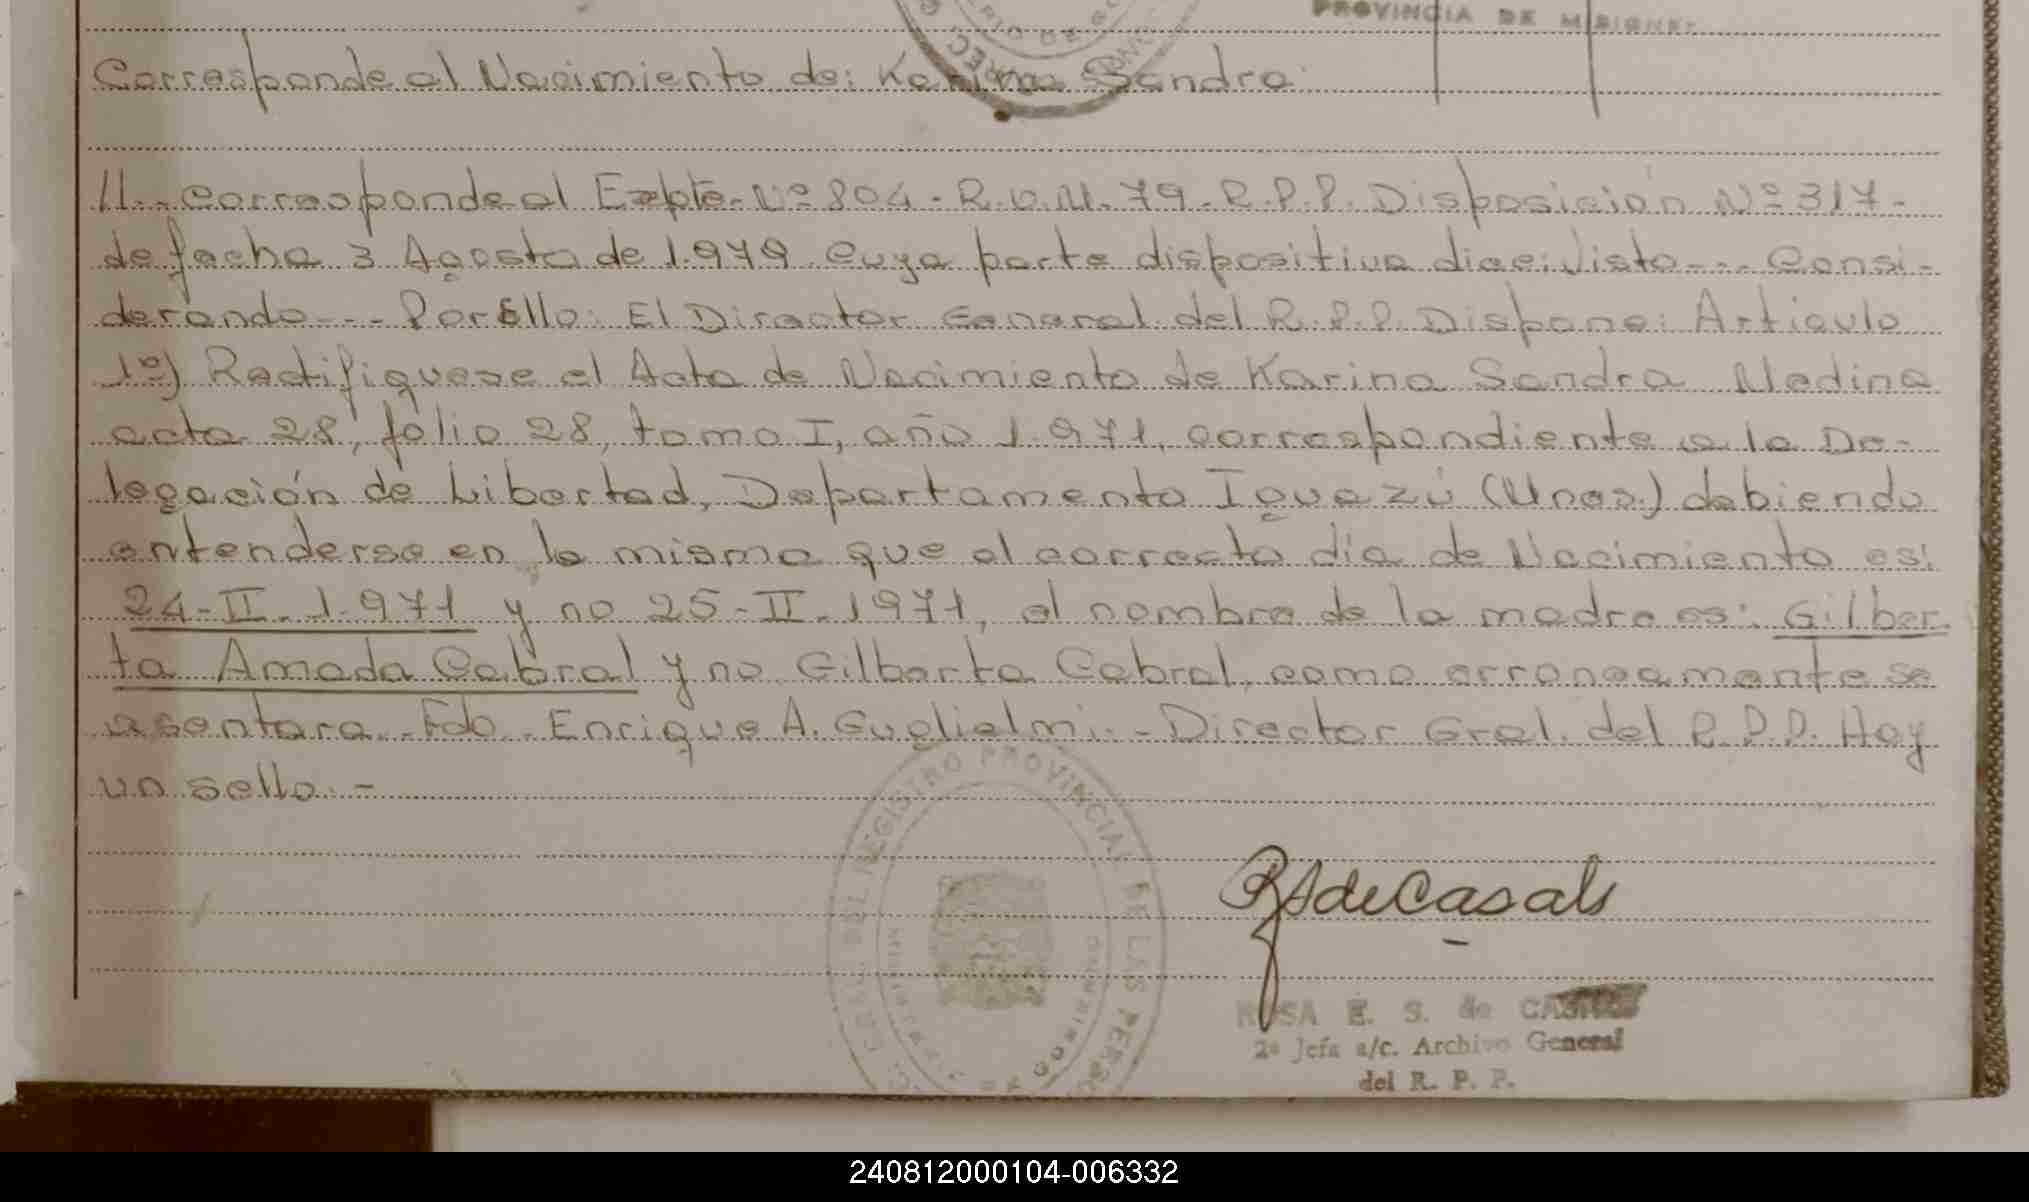 PROVINCIA DE MISIONES
Corresponde al Nacimiento de: Karina Sandra.
11.- Corresponde al Expte. Nº 804 - R.U.M. 79 - R.P.P. Disposición Nº 317-
de fecha 3 Agosto de 1.979 cuya parte dispositiva dice: Visto --- Consi-
derando --- Por Ello: El Director General del R.P.P. Dispone: Articulo
1º) Rectifiquese el Acta de Nacimiento de Karina Sandra Medina
acta 28, folio 28, tomo I, año 1.971, correspondiente a la De-
legación de Libertad, Departamento Iguazú (Mnes.) debiendo
entenderse en la misma que el correcto día de Nacimiento es:
24-II-1.971 y no 25-II-1971, el nombre de la madre es: Gilber-
ta Amada Cabral y no Gilberta Cabral, como erroneamente se
asentara.- Fdo.- Enrique A. Guglielmi.- Director Gral. del R.P.P. Hay
un sello.-
GRAL. DEL REGISTRO PROVINCIAL DE LAS PERSO
RAdeCasals
ROSA E. S. de CASALS
2ª Jefa a/c. Archivo General
del R. P. P.
240812000104-006332